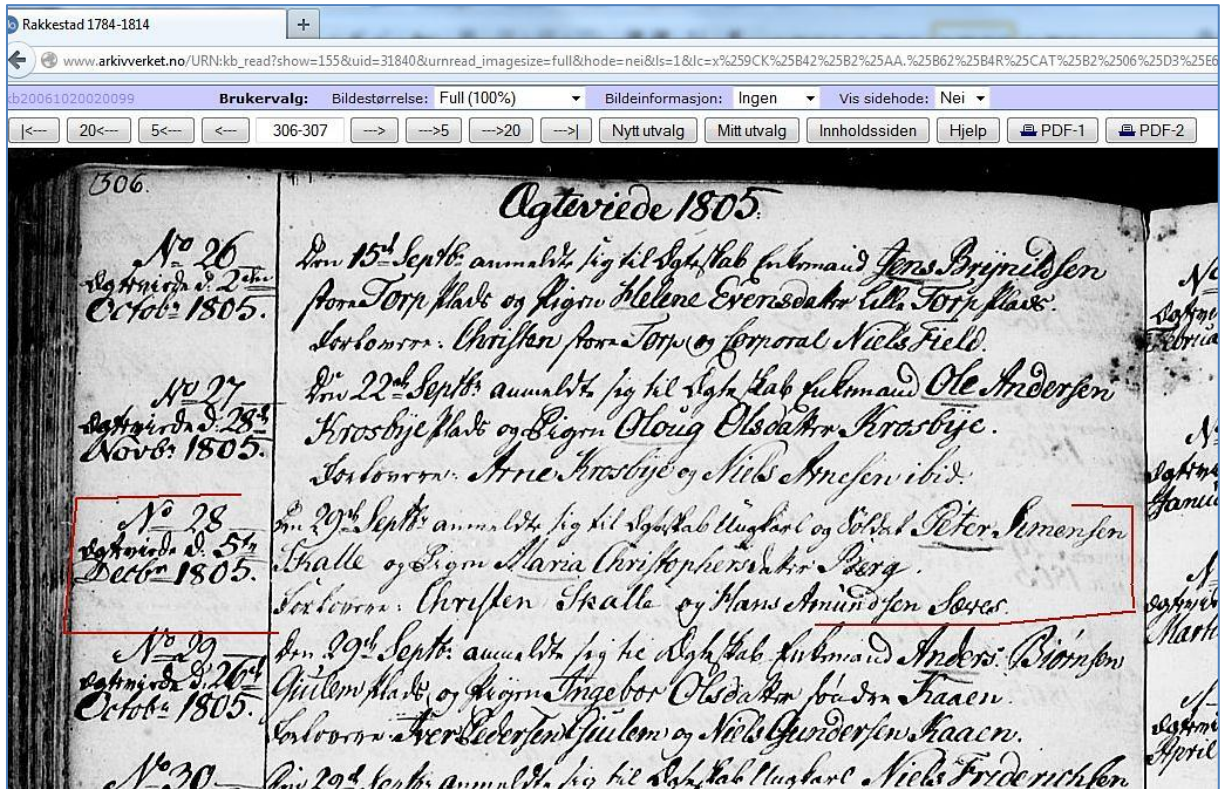 Rakkestad 1784-1814
+
www.arkivverket.no/URN:kb_read?show=155&uid=31840&urnread_imagesize=full&hode=nei&ls=1&lc=x%259CK%25B42%25B2%25AA.%25B62%25B4R%25CAT%25B2%2506%25D3%25E6
kb20061020020099 Brukervalg: Bildestørrelse: Full (100%) Bildeinformasjon: Ingen Vis sidehode: Nei
|<--- 20<--- 5<--- <--- 306-307 ---> --->5 --->20 --->| Nytt utvalg Mitt utvalg Innholdssiden Hjelp PDF-1 PDF-2
306.
Ægteviede 1805.
No 26
Ægteviede d. 2den
Octobr 1805.
Den 15de Septbr anmeldte sig til Ægteskab Enkemand Jens Brynildsen
store Torp Plads og Pigen Helene Evensdatter Lille Torp Plads.
Forlovere: Christen store Torp og Corporal Niels Field
No 27
Ægteviede d. 28de
Novbr 1805.
Den 22de Septbr anmeldte sig til Ægteskab Enkemand Ole Andersen
Krosbye Plads og Pigen Oloug Olsdatter Krosbye.
Forlovere: Arne Krosbye og Niels Arnesen ibid.
No 28
Ægteviede d. 5te
Decbr 1805.
Den 29de Septbr anmeldte sig til Ægteskab Ungkarl og Soldat Peter Simensen
Skalle og Pigen Maria Christophersdatter Berg.
Forlovere: Christen Skalle og Hans Amundsen Sæves.
No 29
Ægteviede d. 26de
Octobr 1805.
Den 29de Septbr anmeldte sig til Ægteskab Enkemand Anders Biørnsen
Giulem Plads og Pigen Ingebor Olsdatter søndre Kaaen.
Forlovere: Iver Pedersen Giulem og Niels Gundersen Kaaen.
No 30
Den 29de Septbr anmeldte sig til Ægteskab Ungkarl Niels Friderichsen